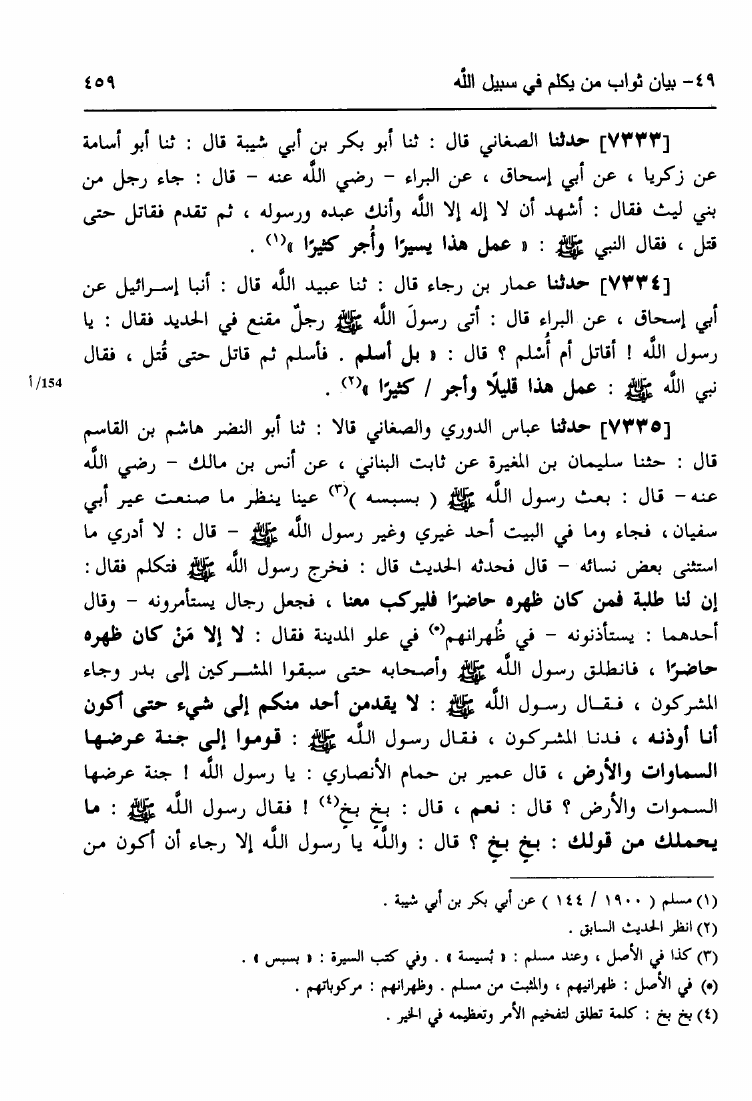 ٤٩- بيان ثواب من يكلم في سبيل اللَّه ٤٥٩
[٧٣٣٣] حدثنا الصغاني قال : ثنا أبو بكر بن أبي شيبة قال : ثنا أبو أسامة
عن زكريا ، عن أبي إسحاق ، عن البراء - رضي اللَّه عنه - قال : جاء رجل من
بني ليث فقال : أشهد أن لا إله إلا اللَّه وأنك عبده ورسوله ، ثم تقدم فقاتل حتى
قتل ، فقال النبي ﷺ : « عمل هذا يسيرًا وأُجر كثيرًا »(١) .
[٧٣٣٤] حدثنا عمار بن رجاء قال : ثنا عبيد اللَّه قال : أنبا إسرائيل عن
أبي إسحاق ، عن البراء قال : أتى رسولَ اللَّه ﷺ رجلٌ مقنع في الحديد فقال : يا
رسول اللَّه ! أقاتل أم أُسْلم ؟ قال : « بل أسلم . فأسلم ثم قاتل حتى قُتل ، فقال
نبي اللَّه ﷺ : عمل هذا قليلًا وأجر / كثيرًا »(٢) .
154/أ
[٧٣٣٥] حدثنا عباس الدوري والصغاني قالا : ثنا أبو النضر هاشم بن القاسم
قال : حثنا سليمان بن المغيرة عن ثابت البناني ، عن أنس بن مالك - رضي اللَّه
عنه - قال : بعث رسول اللَّه ﷺ ( بسبسه )(٣) عينا ينظر ما صنعت عير أبي
سفيان، فجاء وما في البيت أحد غيري وغير رسول اللَّه ﷺ - قال : لا أدري ما
استثنى بعض نسائه - قال فحدثه الحديث قال : فخرج رسول اللَّه ﷺ فتكلم فقال:
إن لنا طلبة فمن كان ظهره حاضرًا فليركب معنا ، فجعل رجال يستأمرونه - وقال
أحدهما : يستأذنونه - في ظُهرانهم(*) في علو المدينة فقال : لا إلا مَنْ كان ظهره
حاضرًا ، فانطلق رسول اللَّه ﷺ وأصحابه حتى سبقوا المشركين إلى بدر وجاء
المشركون ، فقال رسول اللَّه ﷺ : لا يقدمن أحد منكم إلى شيء حتى أكون
أنا أوذنه ، فدنا المشركون ، فقال رسول اللَّه ﷺ : قوموا إلى جنة عرضها
السماوات والأرض ، قال عمير بن حمام الأنصاري : يا رسول اللَّه ! جنة عرضها
السموات والأرض ؟ قال : نعم ، قال : بخٍ بخٍ(٤) ! فقال رسول اللَّه ﷺ : ما
يحملك من قولك : بخ بخ ؟ قال : واللَّه يا رسول اللَّه إلا رجاء أن أكون من
(١) مسلم ( ١٩٠٠ / ١٤٤ ) عن أبي بكر بن أبي شيبة .
(٢) انظر الحديث السابق .
(٣) كذا في الأصل ، وعند مسلم : « بُسيسة » . وفي كتب السيرة : « بسبس » .
(*) في الأصل : ظهرانيهم ، والمثبت من مسلم . وظهرانهم : مركوباتهم .
(٤) بخ بخ : كلمة تطلق لتفخيم الأمر وتعظيمه في الخير .